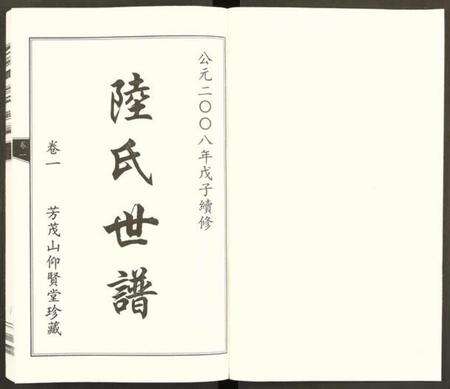 公元二〇〇八年戊子續修
陸氏世譜
卷一
芳茂山仰賢堂珍藏
卷一